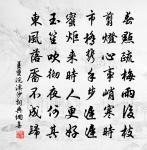 春點疏梅雨後枝
剪燈心事峭寒時
市橋攜手步遲遲
蜜炬來時人更好
玉笙吹徹夜何其
東風落靨不成歸
姜夔浣溪沙